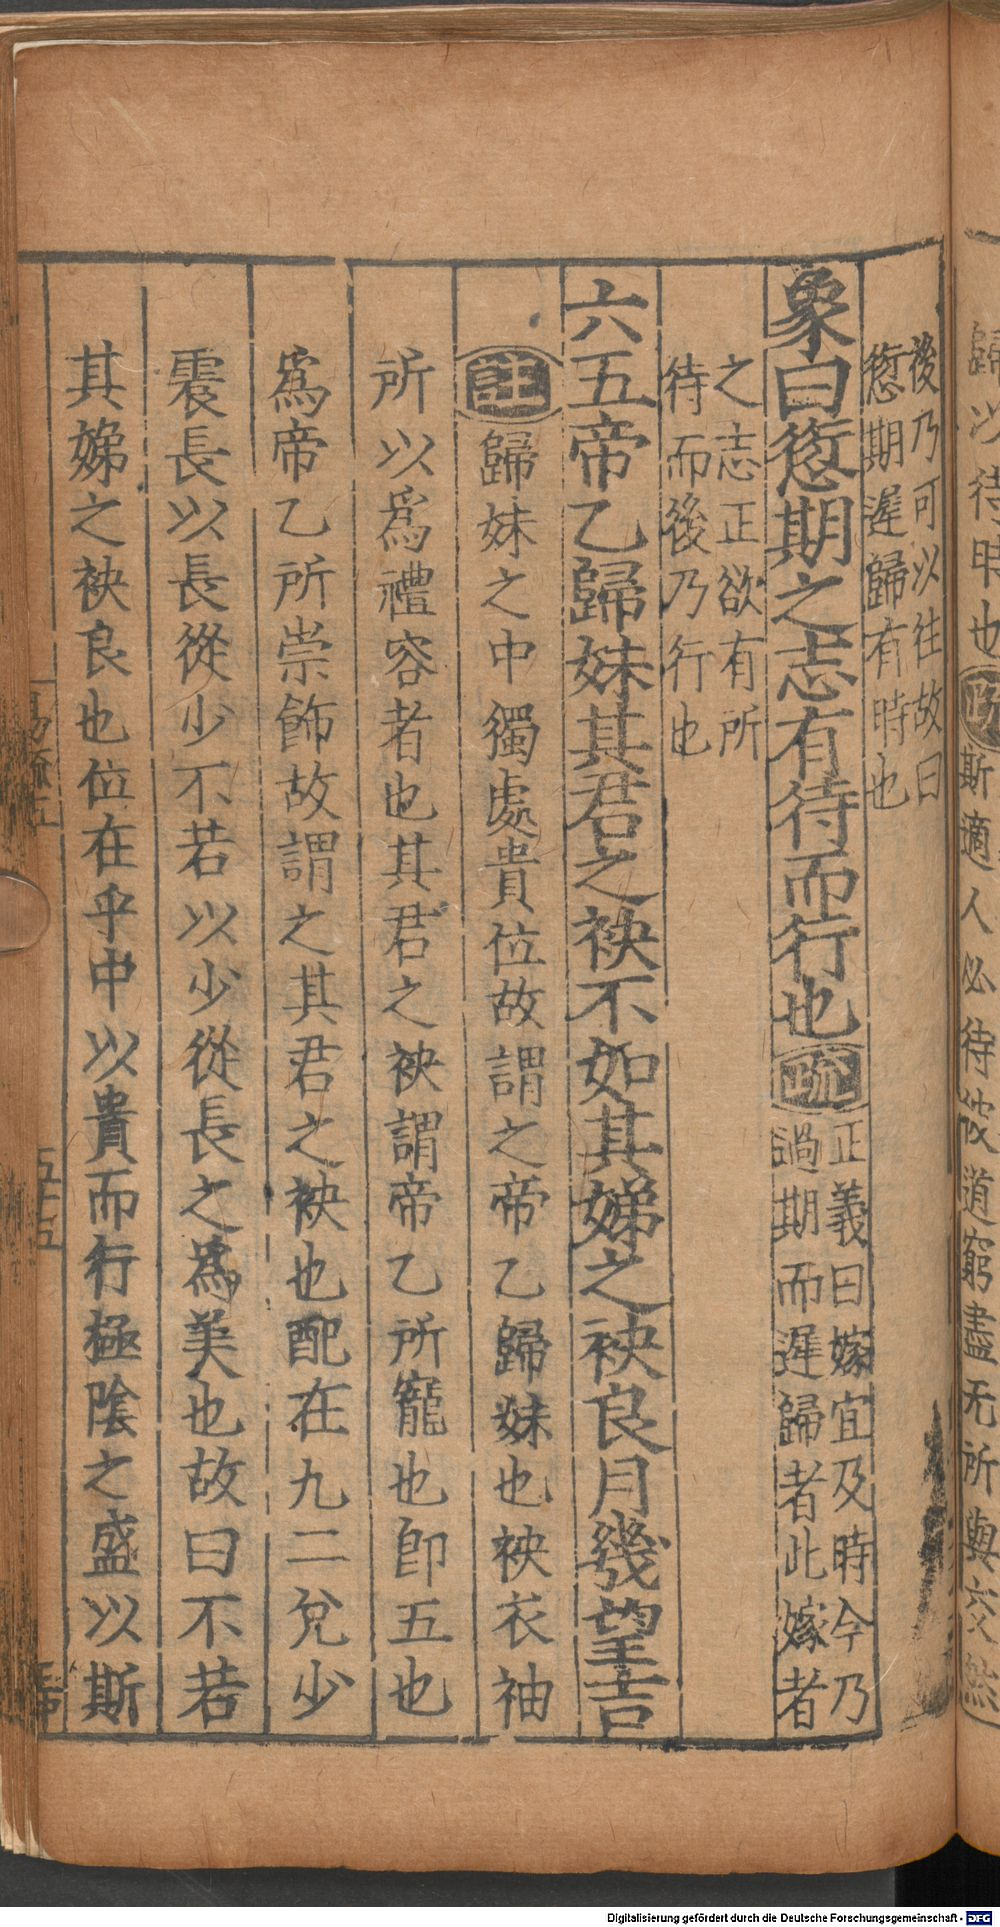 歸以待時也疏斯適人必待彼道窮盡无所與交然
後乃可以往故曰
愆期遲歸有時也
象曰愆期之志有待而行也疏正義曰嫁宜及時今乃
過期而遲歸者此嫁者
之志正欲有所
待而後乃行也
六五帝乙歸妹其君之袂不如其娣之袂良月幾望吉
註歸妹之中獨處貴位故謂之帝乙歸妹也袂衣袖
所以爲禮容者也其君之袂謂帝乙所寵也卽五也
爲帝乙所崇飾故謂之其君之袂也配在九二兌少
震長以長從少不若以少從長之爲美也故曰不若
其娣之袂良也位在乎中以貴而行極陰之盛以斯
五十五
Digitalisierung gefördert durch die Deutsche Forschungsgemeinschaft - DFG